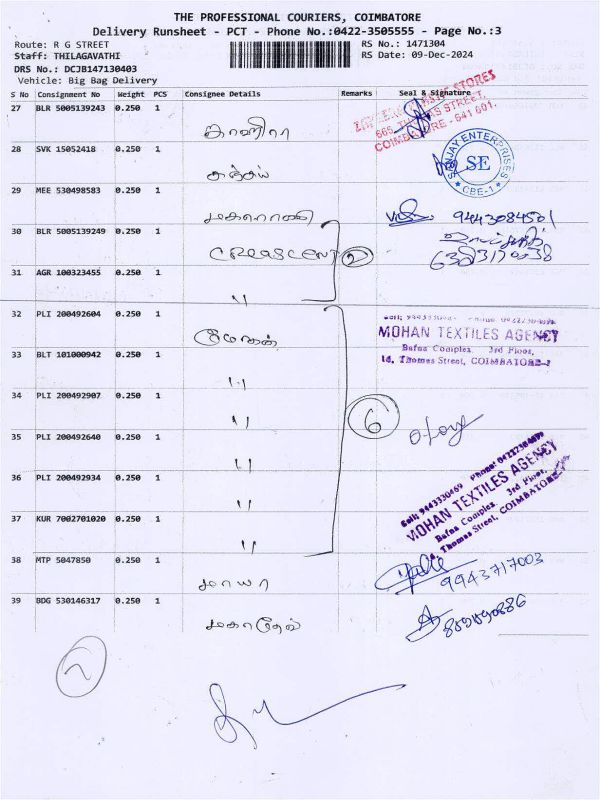 THE PROFESSIONAL COURIERS, COIMBATORE
Delivery Runsheet - PCT - Phone No.:0422-3505555 - Page No.:3
Route: R G STREET
RS No.: 1471304
Staff: THILAGAVATHI
RS Date: 09-Dec-2024
DRS No.: DCJB147130403
Vehicle: Big Bag Delivery
S No Consignment No Weight PCS Consignee Details Remarks Seal & Signature
27 BLR 5005139243 0.250 1
STORES
THOMAS STREET,
COIMBATORE - 641 001.
28 SVK 15052418 0.250 1
சஞ்சய்
SANJAY ENTERPRISES
SE
CBE-1
29 MEE 530498583 0.250 1
மகாராணி
9443084501
30 BLR 5005139249 0.250 1
CREASCENT 2
31 AGR 100323455 0.250 1
"
32 PLI 200492604 0.250 1
மோகன்
MOHAN TEXTILES AGENCY
Bafna Complex, 3rd Floor,
16, Thomas Street, COIMBATORE-1
33 BLT 101000942 0.250 1
"
34 PLI 200492907 0.250 1
" 6
35 PLI 200492640 0.250 1
"
36 PLI 200492934 0.250 1
"
Cell: 9443330469 Phone: 04222304690
MOHAN TEXTILES AGENCY
Bafna Complex, 3rd Floor,
Thomas Street, COIMBATORE
37 KUR 7002701020 0.250 1
"
38 MTP 5047850 0.250 1
மாயா
9943717003
39 BDG 530146317 0.250 1
மகாதேவ்
2